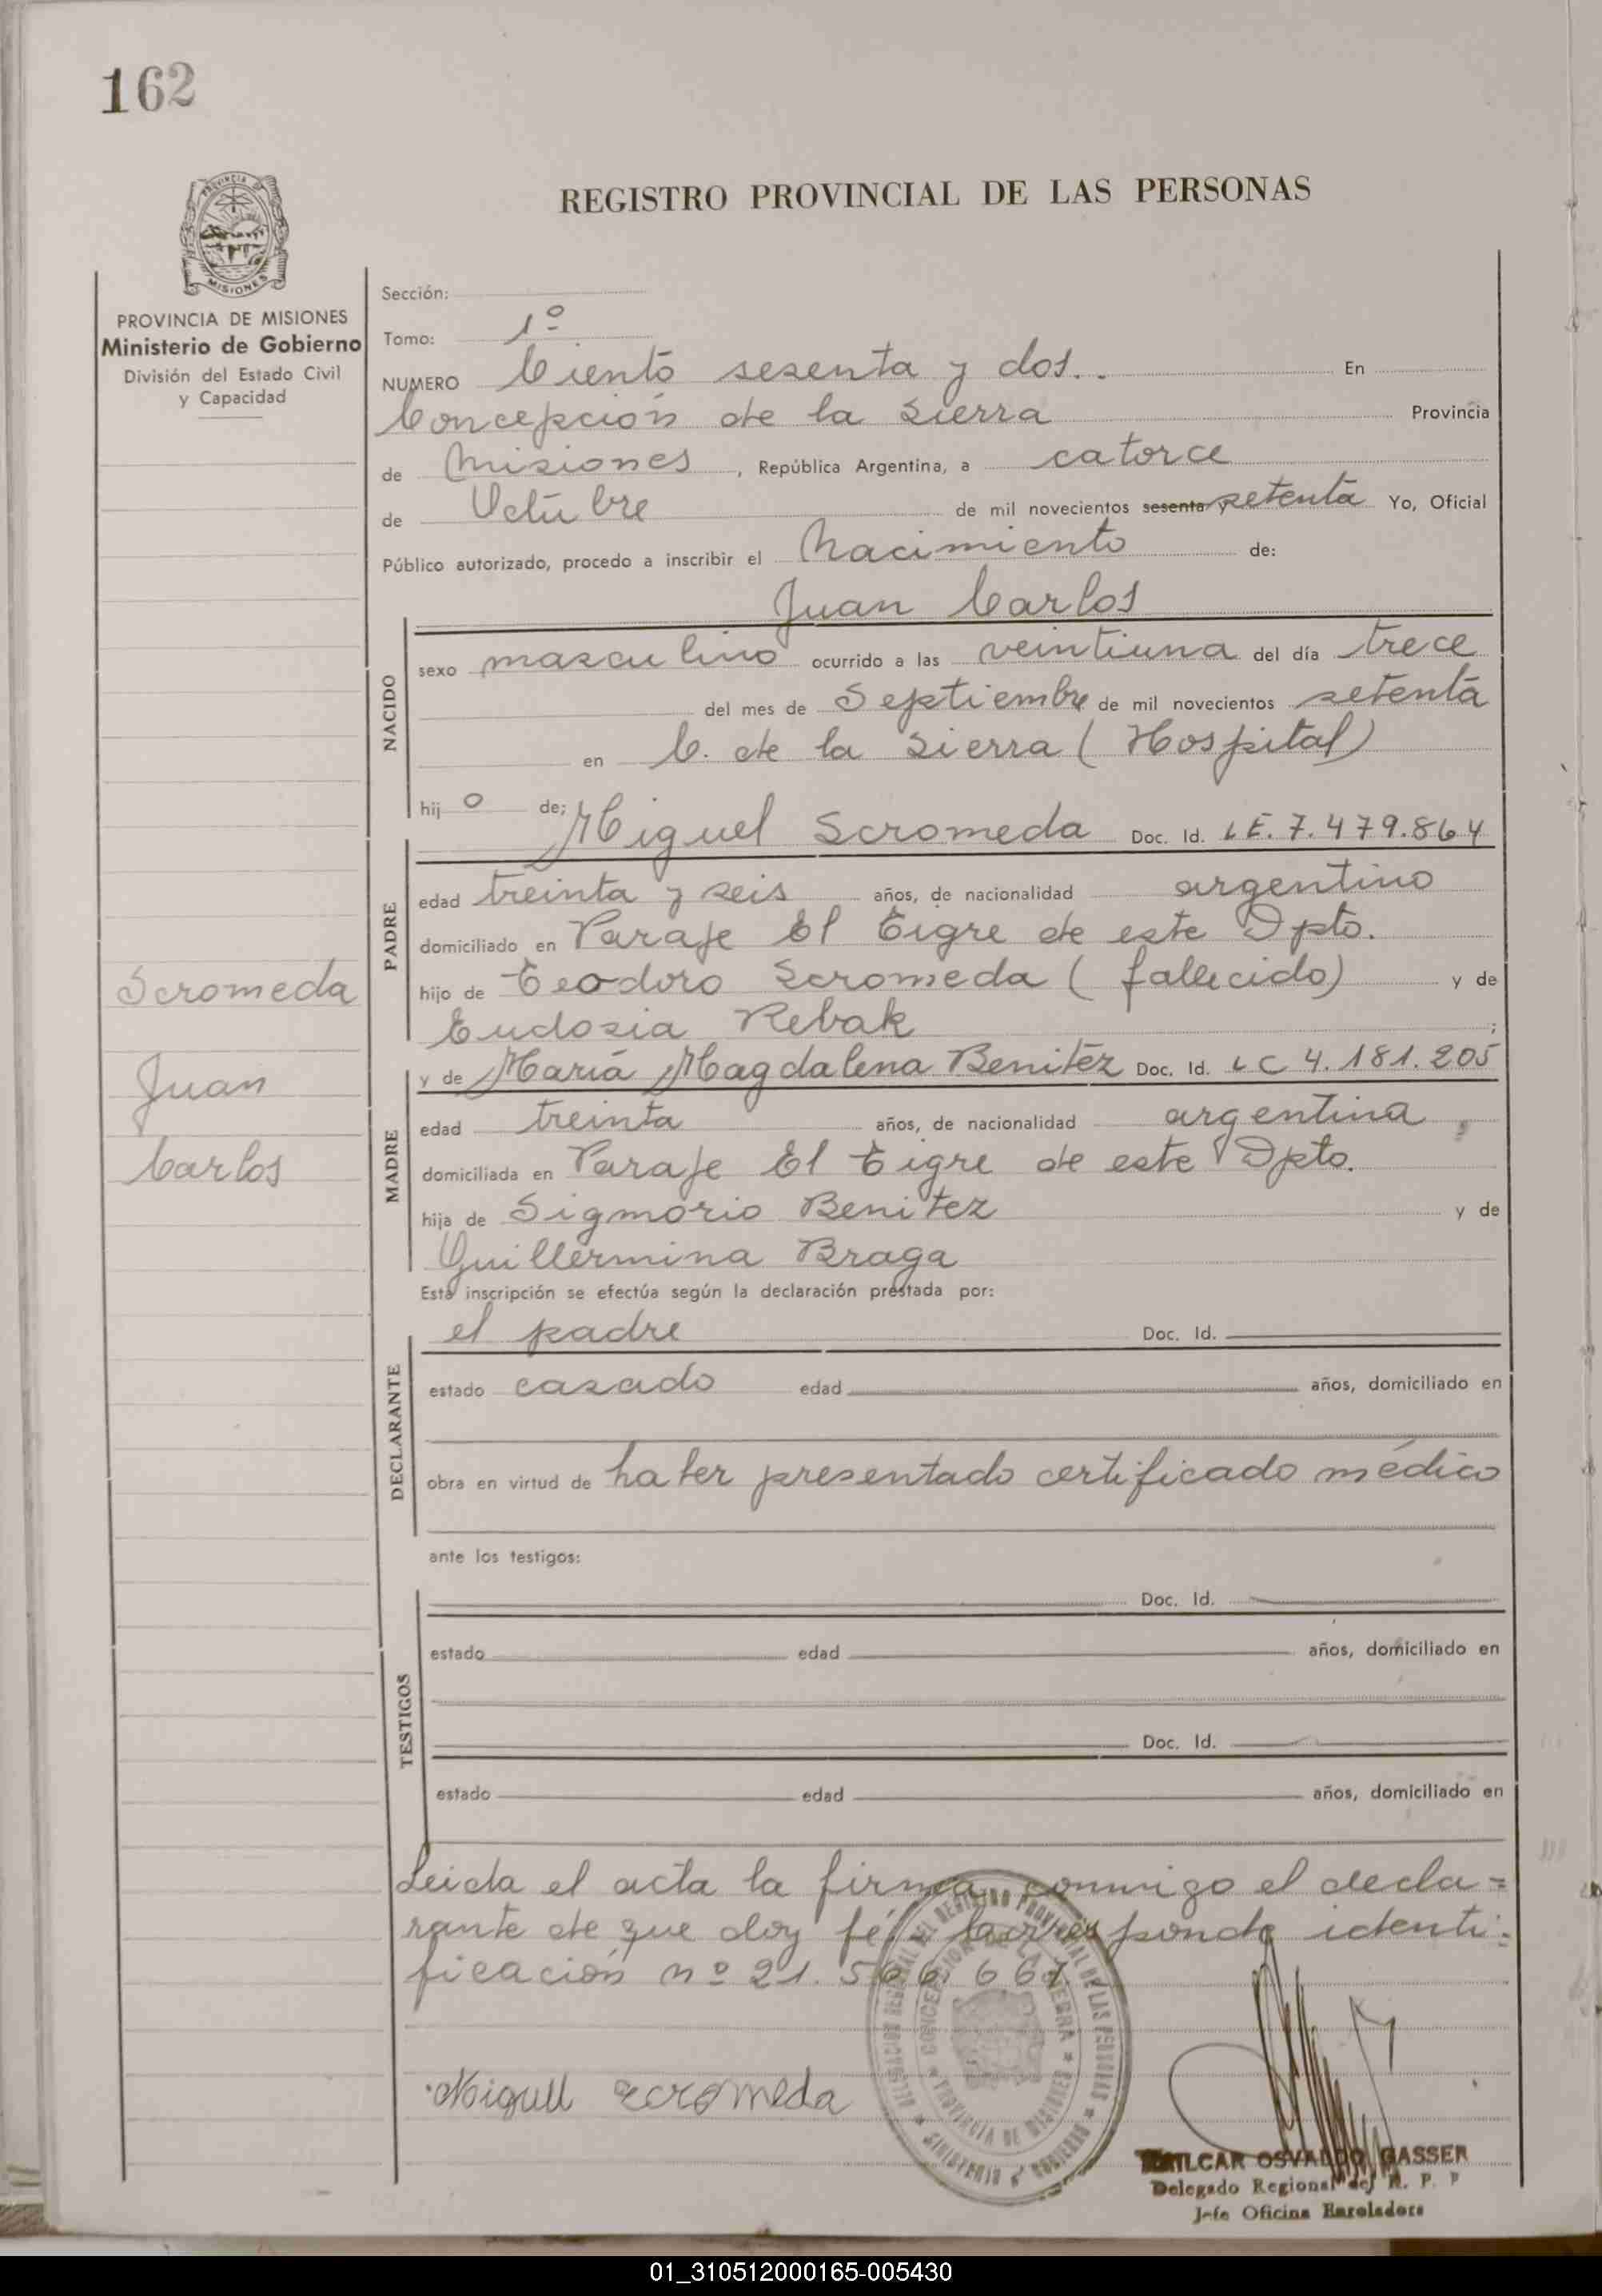 162
REGISTRO PROVINCIAL DE LAS PERSONAS
PROVINCIA DE MISIONES
Ministerio de Gobierno
División del Estado Civil
y Capacidad
Sección:
Tomo: 1º
NUMERO Ciento sesenta y dos.. En
Concepción de la Sierra Provincia
de Misiones, República Argentina, a catorce
de Octubre de mil novecientos sesenta y setenta Yo, Oficial
Público autorizado, procedo a inscribir el Nacimiento de:
Juan Carlos
NACIDO
sexo masculino ocurrido a las veintiuna del día trece
del mes de Septiembre de mil novecientos setenta
en C. de la Sierra (Hospital)
hijo de; Miguel Scromeda Doc. Id. LE. 7.479.864
PADRE
edad treinta y seis años, de nacionalidad argentino
domiciliado en Paraje El Tigre de este Dpto.
hijo de Teodoro Scromeda (fallecido) y de
Eudosia Rebak;
y de María Magdalena Benitéz Doc. Id. LC 4.181.205
MADRE
edad treinta años, de nacionalidad argentina
domiciliada en Paraje El Tigre de este Dpto.
hija de Sigmorio Benitez y de
Guillermina Braga
Esta inscripción se efectúa según la declaración prestada por:
el padre Doc. Id.
DECLARANTE
estado casado edad años, domiciliado en
obra en virtud de haber presentado certificado médico
ante los testigos:
TESTIGOS
Doc. Id.
estado edad años, domiciliado en
Doc. Id.
estado edad años, domiciliado en
Leida el acta la firma conmigo el decla=
rante de que doy fé. Corresponde identi=
ficación nº 21.566.661
Scromeda
Juan
Carlos
Miguel Scromeda
CONCEPCION DE LA SIERRA
PROVINCIA DE MISIONES
OSVALDO GASSER
Delegado Regional del R. P. P
Jefe Oficina Enroladora
01_310512000165-005430